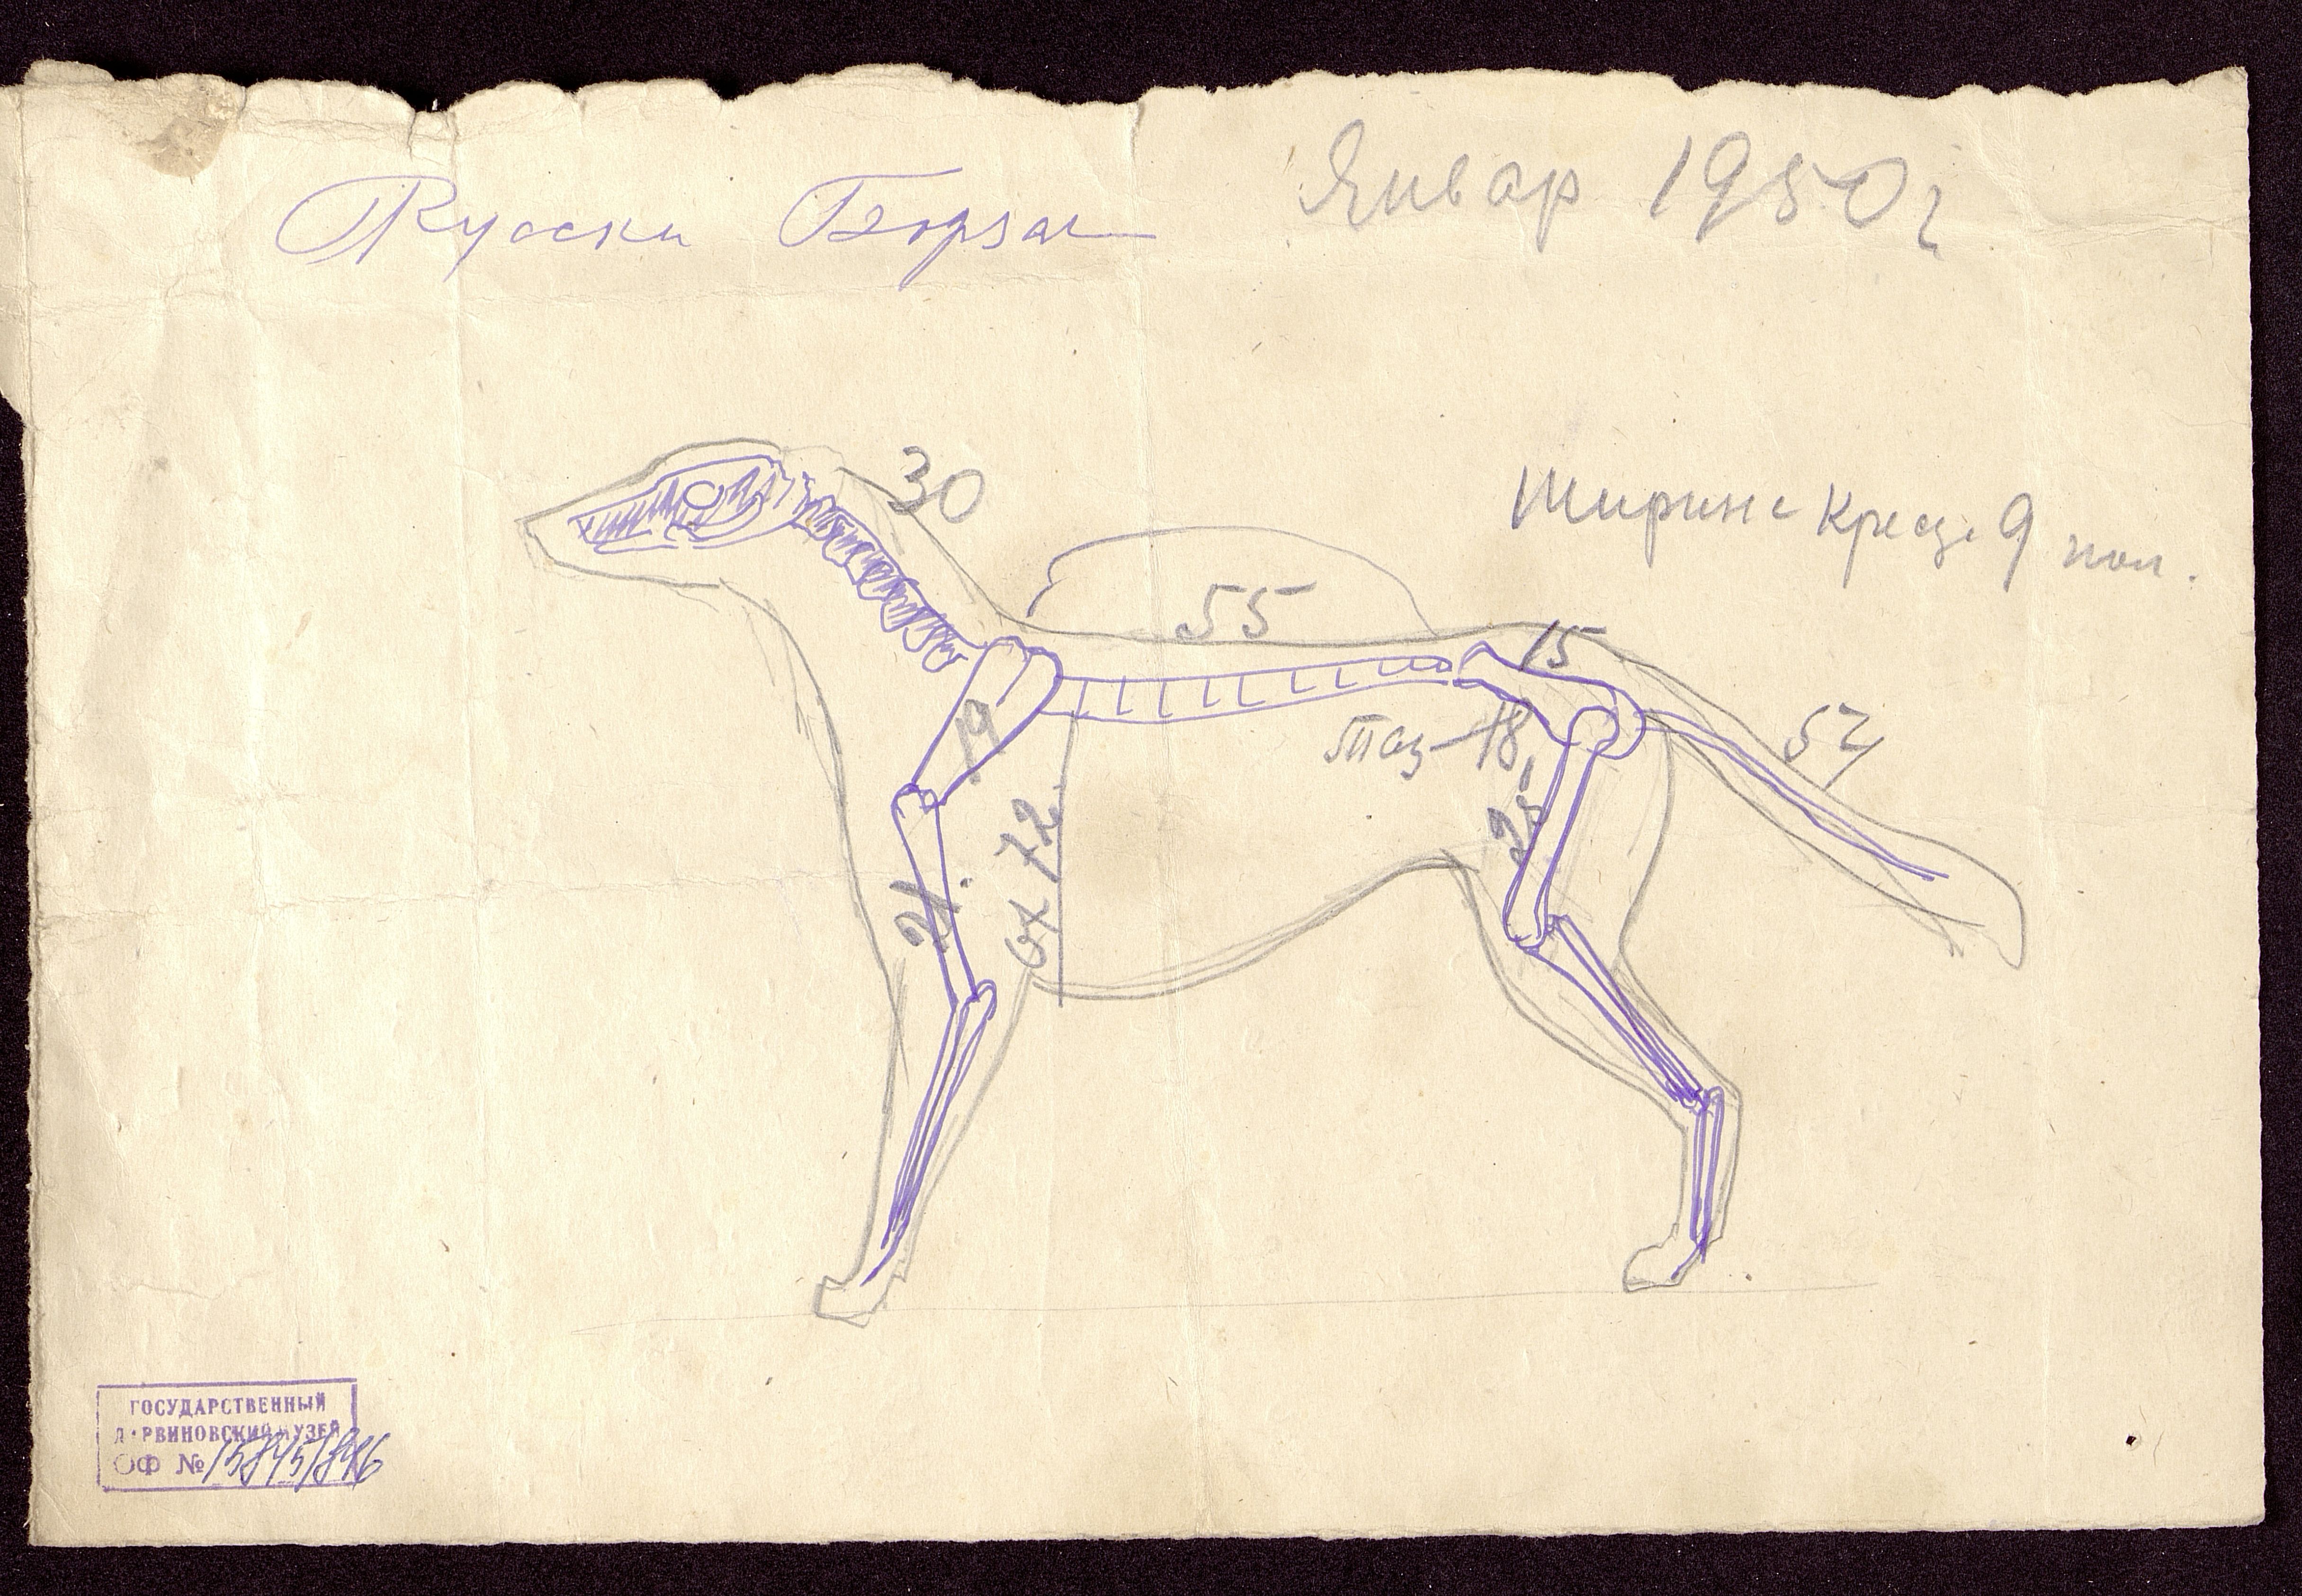 Русски Борзая
Январ 1950 г
30
Ширине Крест. 9 пол.
55
15
19
Таз-18
54
25
ох 72.
21.
ГОСУДАРСТВЕННЫЙ
ДАРВИНОВСКИЙ МУЗЕЙ
ОФ №15845/846